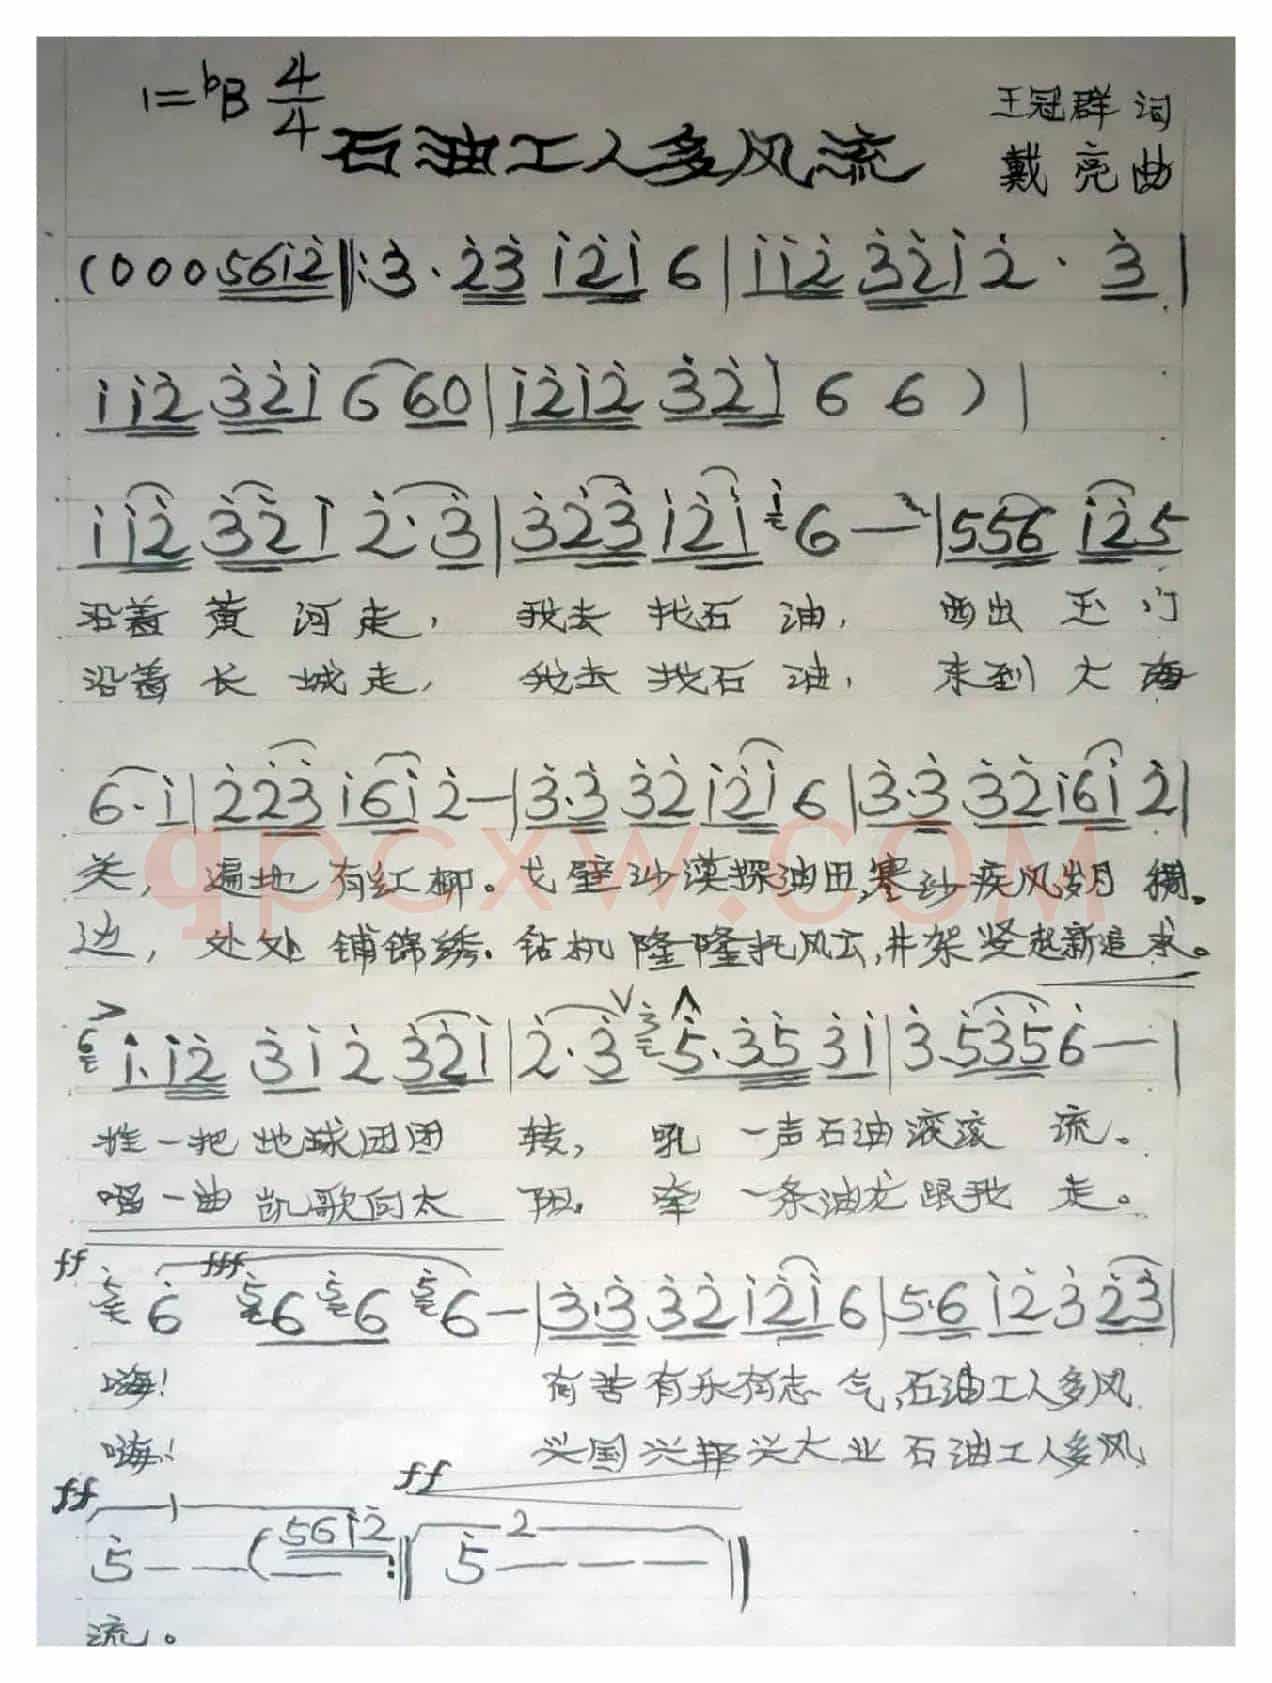 1=ᵇB 4/4
石油工人多风流
王冠群 词
戴亮曲
(0 0 0 561̇2̇ ‖: 3̇· 2̇3̇ 1̇2̇1̇ 6 | 1̇1̇2̇ 3̇2̇1̇ 2̇· 3̇ |
1̇1̇2̇ 3̇2̇1̇ 6 60 | 1̇2̇1̇2̇ 3̇2̇1̇ 6 6 ) |
1̇1̇2̇ 3̇2̇1̇ 2̇· 3̇ | 3̇2̇3̇ 1̇2̇1̇ 1̇ 6 — | 556 1̇2̇5
沿着 黄 河 走, 我去 找石 油, 西出 玉 门
沿着 长 城 走, 我去 找石 油, 来到 大 海
6· 1̇ | 2̇2̇3̇ 1̇61̇ 2̇ — | 3̇·3̇ 3̇2̇ 1̇2̇1̇ 6 | 3̇·3̇ 3̇2̇ 1̇61̇ 2̇ |
关, 遍地 有红柳。戈壁沙漠探油田,寒沙疾风岁月稠。
边, 处处 铺锦绣。钻机隆隆托风云,井架竖起新追求。
qpcxw.com
6 1̇·1̇2̇ 3̇1̇ 2̇ 3̇2̇1̇ | 2̇·3̇ 3̇ 5̇·3̇5̇ 3̇1̇ | 3̇·5̇3̇5̇ 6̇ — |
推一把 地球团团 转, 吼 一声石油滚滚 流。
唱一曲 凯歌向太 阳。 牵 一条油龙跟我 走。
ff fff
5̇ 6̇ 5̇ 6 5̇ 6 5̇ 6 — | 3̇·3̇ 3̇2̇ 1̇2̇1̇ 6 | 5·6 1̇2̇ 3̇ 2̇3̇ |
嗨! 有苦有乐有志气,石油工人多风
嗨! 兴国兴邦兴大业 石油工人多风
ff 1 ff 2
5̇ — — (561̇2̇ :‖ 5̇ — — — ‖
流。